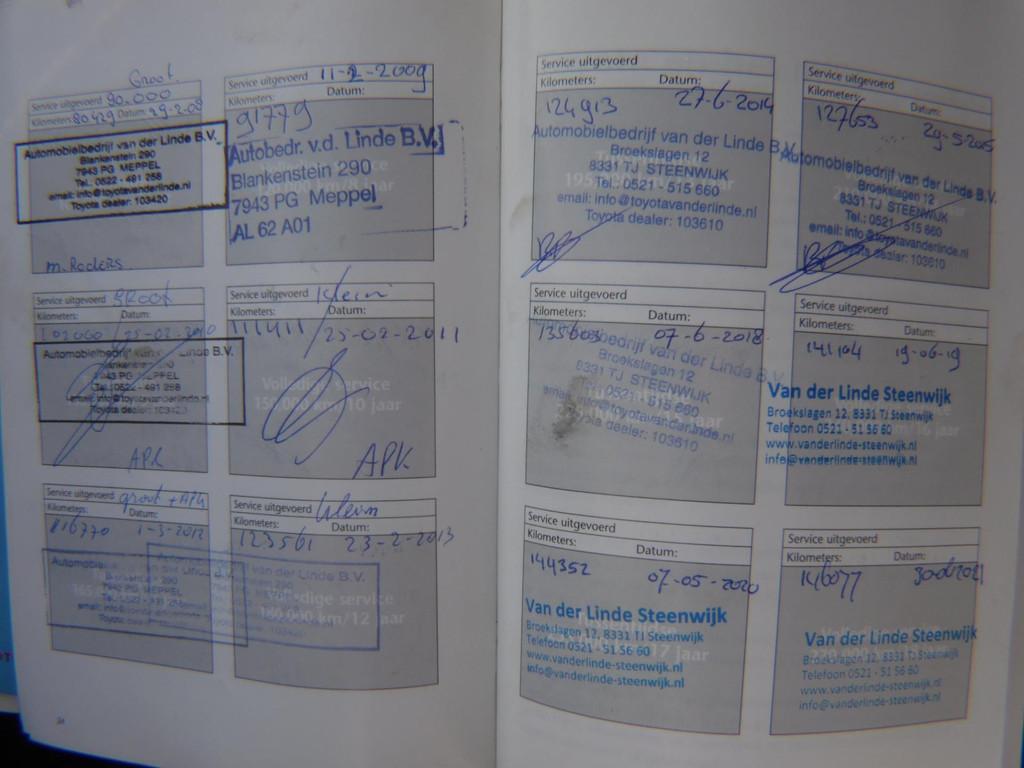 Groot
Service uitgevoerd 90.000
Kilometers: 80429 Datum: 29-2-08
Automobielbedrijf van der Linde B.V.
Blankenstein 290
7943 PG MEPPEL
Tel.: 0522 - 491 258
email: info@toyotavanderlinde.nl
Toyota dealer: 103420
m. Roders
Service uitgevoerd 11-2-2009
Kilometers: Datum:
91779
Autobedr. v.d. Linde B.V.
Blankenstein 290
7943 PG Meppel
AL 62 A01
Service uitgevoerd groot
Kilometers: Datum:
102000 25-02-2010
Automobielbedrijf Linde B.V.
Blankenstein 290
7943 PG MEPPEL
Tel.: 0522 - 491 258
email: info@toyotavanderlinde.nl
Toyota dealer: 103420
APK
Service uitgevoerd klein
Kilometers: Datum:
111411 25-02-2011
Volledige service
150.000 km/10 jaar
APK
Service uitgevoerd groot + APK
Kilometers: Datum:
116770 1-3-2012
Service uitgevoerd klein
Kilometers: Datum:
123561 23-2-2013
van der Linde B.V.
Volledige service
180.000 km/12 jaar
Service uitgevoerd
Kilometers: Datum:
124913 27-6-2014
Automobielbedrijf van der Linde B.V.
Broekslagen 12
8331 TJ STEENWIJK
Tel.: 0521 - 515 660
email: info@toyotavanderlinde.nl
Toyota dealer: 103610
Service uitgevoerd
Kilometers: Datum:
127653
Automobielbedrijf van der Linde B.V.
Broekslagen 12
8331 TJ STEENWIJK
Tel.: 0521 - 515 660
email: info@toyotavanderlinde.nl
Toyota dealer: 103610
Service uitgevoerd
Kilometers: Datum:
135603 07-6-2018
van der Linde B.V.
Broekslagen 12
8331 TJ STEENWIJK
Tel.: 0521 - 515 660
email: info@toyotavanderlinde.nl
Toyota dealer: 103610
Service uitgevoerd
Kilometers: Datum:
141104 19-06-19
Van der Linde Steenwijk
Broekslagen 12, 8331 TJ Steenwijk
Telefoon 0521 - 51 56 60
www.vanderlinde-steenwijk.nl
info@vanderlinde-steenwijk.nl
Service uitgevoerd
Kilometers: Datum:
144352 07-05-2020
Van der Linde Steenwijk
Broekslagen 12, 8331 TJ Steenwijk
Telefoon 0521 - 51 56 60
www.vanderlinde-steenwijk.nl
info@vanderlinde-steenwijk.nl
Service uitgevoerd
Kilometers: Datum:
146077
Van der Linde Steenwijk
Broekslagen 12, 8331 TJ Steenwijk
Telefoon 0521 - 51 56 60
www.vanderlinde-steenwijk.nl
info@vanderlinde-steenwijk.nl